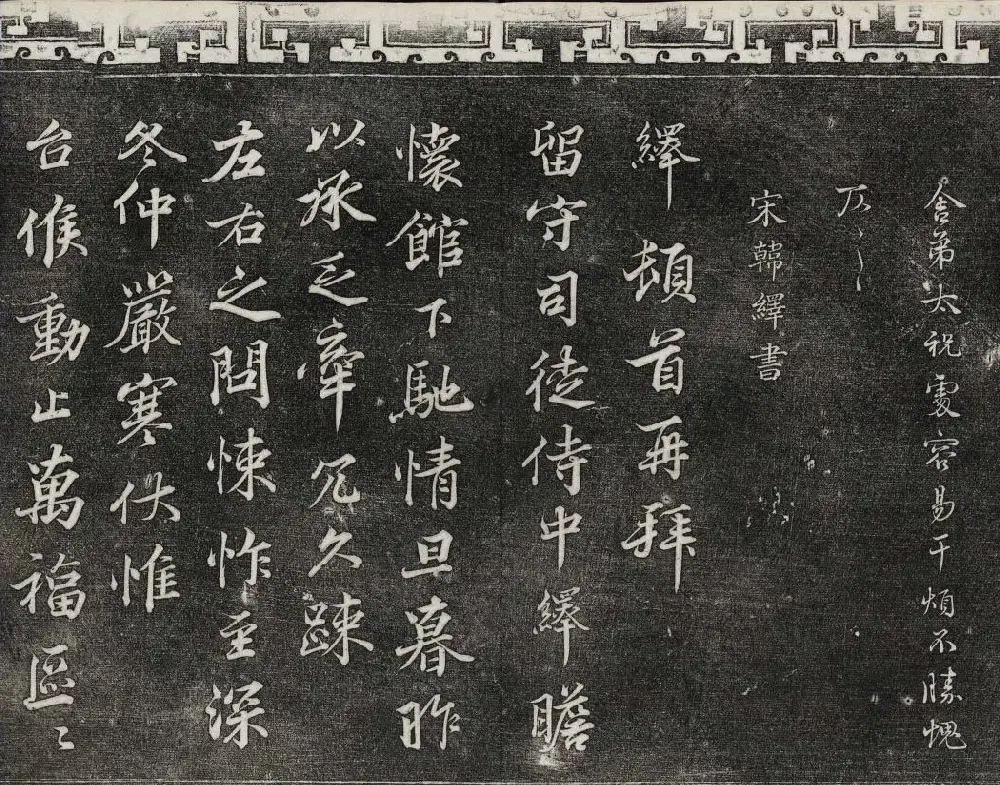 舍弟太祝處容易干煩不勝愧
仄〻
宋韓繹書
繹頓首再拜
留守司徒侍中繹瞻
懷館下馳情旦暮昨
以承乏牽冗久踈
左右之問悚怍至深
冬仲嚴寒伏惟
台候動止萬福區〻